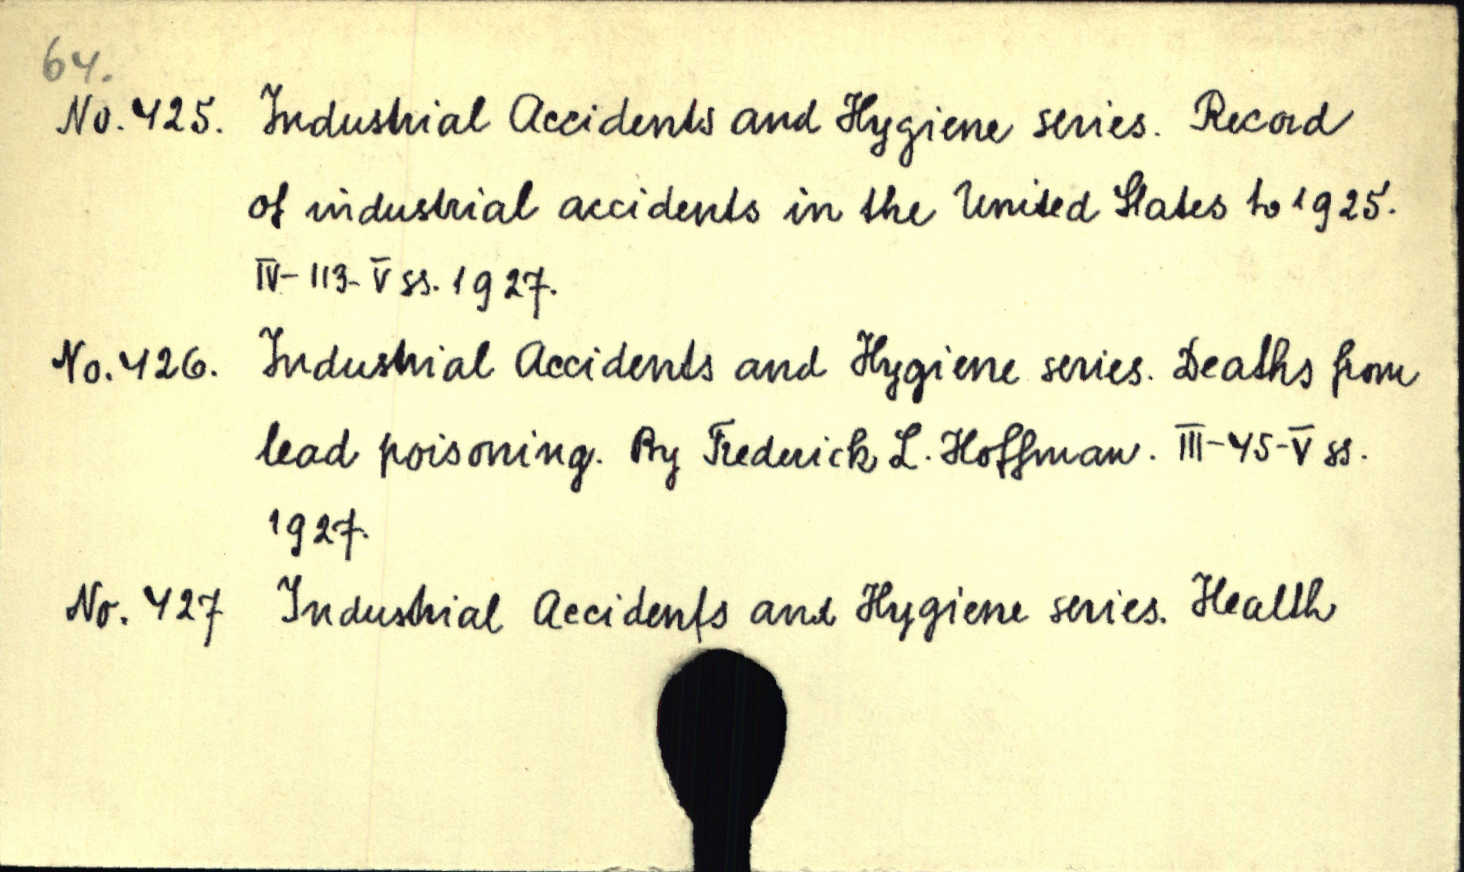 64.
No. 425. Industrial Accidents and Hygiene series. Record
of industrial accidents in the United States to 1925.
IV-113-V ss. 1927.
No. 426. Industrial Accidents and Hygiene series. Deaths from
lead poisoning. By Frederick L. Hoffman. III-45-V ss.
1927.
No. 427 Industrial Accidents and Hygiene series. Health